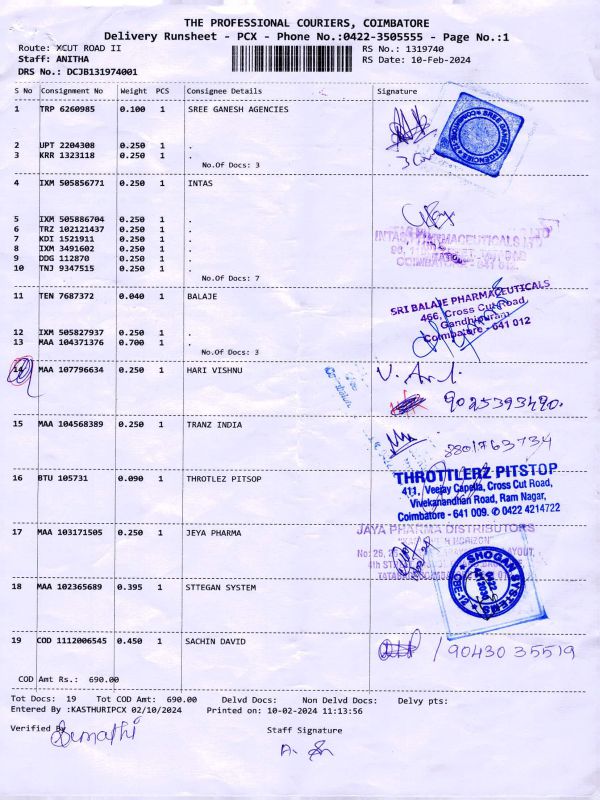 THE PROFESSIONAL COURIERS, COIMBATORE
Delivery Runsheet - PCX - Phone No.:0422-3505555 - Page No.:1
Route: XCUT ROAD II RS No.: 1319740
Staff: ANITHA RS Date: 10-Feb-2024
DRS No.: DCJB131974001
S No Consignment No Weight PCS Consignee Details Signature
1 TRP 6260985 0.100 1 SREE GANESH AGENCIES
2 UPT 2204308 0.250 1 .
3 KRR 1323118 0.250 1 .
No.Of Docs: 3
4 IXM 505856771 0.250 1 INTAS
5 IXM 505886704 0.250 1 .
6 TRZ 102121437 0.250 1 .
7 KDI 1521911 0.250 1 .
8 IXM 3491602 0.250 1 .
9 DDG 112870 0.250 1 .
10 TNJ 9347515 0.250 1 .
No.Of Docs: 7
11 TEN 7687372 0.040 1 BALAJE
SRI BALAJE PHARMACEUTICALS
466, Cross Cut Road,
Gandhipuram
Coimbatore - 641 012
12 IXM 505827937 0.250 1 .
13 MAA 104371376 0.700 1 .
No.Of Docs: 3
14 MAA 107796634 0.250 1 HARI VISHNU
9025393490.
15 MAA 104568389 0.250 1 TRANZ INDIA
8801763734
16 BTU 105731 0.090 1 THROTLEZ PITSOP
THROTTLERZ PITSTOP
411, Veejay Capella, Cross Cut Road,
Vivekanandhan Road, Ram Nagar,
Coimbatore - 641 009. ✆ 0422 4214722
17 MAA 103171505 0.250 1 JEYA PHARMA
JAYA PHARMA DISTRIBUTORS
18 MAA 102365689 0.395 1 STTEGAN SYSTEM
SHOGAN SYSTEMS
CBE-12
19 COD 1112006545 0.450 1 SACHIN DAVID
/ 90430 35519
COD Amt Rs.: 690.00
Tot Docs: 19 Tot COD Amt: 690.00 Delvd Docs: Non Delvd Docs: Delvy pts:
Entered By :KASTHURIPCX 02/10/2024 Printed on: 10-02-2024 11:13:56
Verified By Staff Signature